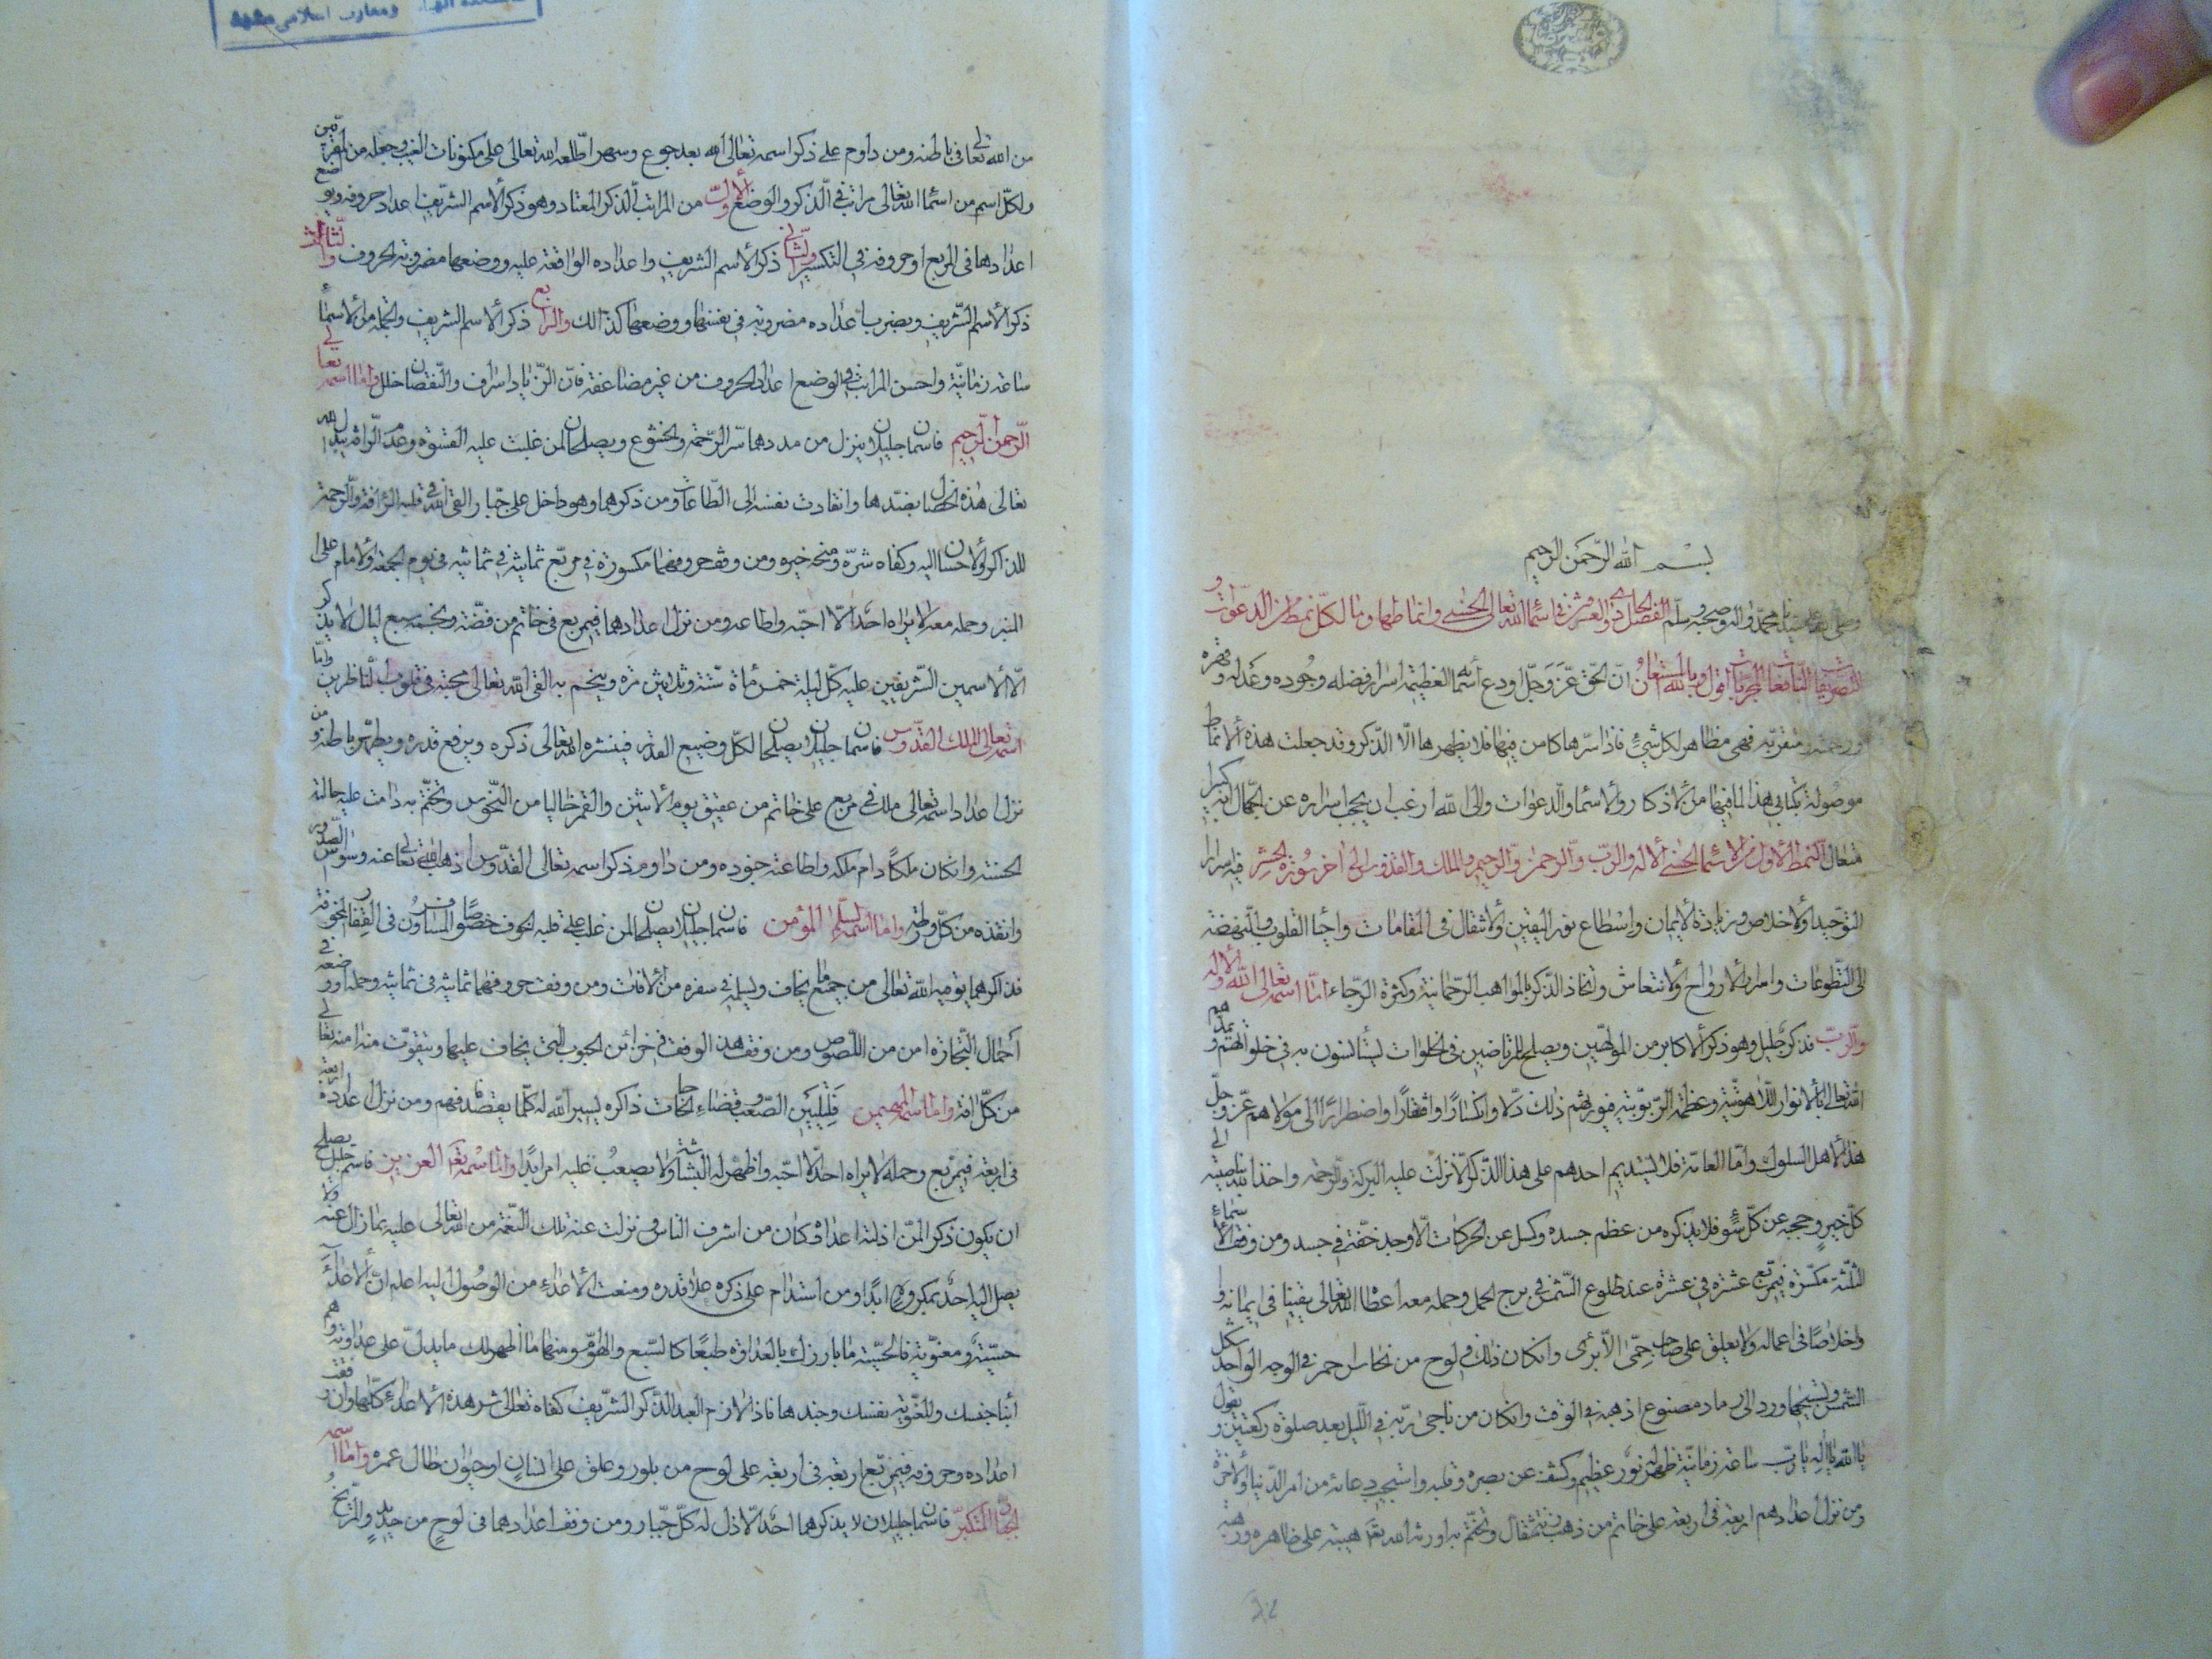 بسم الله الرحمن الرحيم
وصلى الله على سيدنا محمد واله وصحبه وسلم الفصل الحادي والعشرون في اسماء الله تعالى الحسنى وانماطها وما لكل نمط من الدعوات و
التصريفات النافعات المجربات اقول وبالله المستعان ان الحق عز وجل اودع أسمائه العظيمة اسرار فضله وجوده وعدله وقهره
ورحمته فهي مظاهر لكل شيء فاذا سرها كامن فيها فلا يظهرها الا الذكر وقد جعلت هذه الانماط
موصولة بكتابي هذا لما فيها من الاذكار والاسما والدعوات والى الله ارغب ان يحجب اسراره عن الجهال انه كبير
متعال النمط الاول من الاسماء الحسنى الاله والرب والرحمن والرحيم والملك والقدوس الى اخر سورة الحشر فيه اسرار
التوحيد والاخلاص وزيادة الايمان واسطاع نور اليقين والاثقال في المقامات واحيا القلوب والنهضة
الى التطوعات واسرار الارواح والانتعاش واتخاذ الذكر بالمواهب الرحمانية وكثرة الرجاء اما اسمه تعالى الله والاله
والرب فذكر جليل وهو ذكر الاكابر من المولهين ويصلح للمرتاضين في الخلوات ليستأنسون به في خلواتهم ويمدهم
الله تعالى بالانوار اللاهوتية وعظمة الربوبية فيورثهم ذلك ذلا وانكسارا وافتقارا واضطرارا الى مولاهم عز وجل
هذا لاهل السلوك واما العامة فلا يستديم احدهم على هذا الذكر الا نزلت عليه البركة والرحمة واخذ بناصيته الى
كل خير وحجبه عن كل سوء فلا يذكره من عظم جسده وكسل عن الحركات الا وجد خفة في جسده ومن وفق الاسماء
الثلثة مكسرة في مربع عشرة في عشرة عند طلوع الشمس في برج الحمل وحمله معه اعطاه الله تعالى يقينا في ايمانه و
واخلاصا في اعماله ولا يعلق على صاحب حمى الا برئ وان كان ذلك في لوح من نحاس احمر في الوجه الواحد شكل
الشمس ورد الى رماد مصنوع اذهبه في الوقت وان كان من ناجى ربه في الليل بعد صلوة ركعتين ويقول
يا الله يا اله يا رب ساعة زمانية ظهر له نور عظيم وكشف عن بصره وقلبه واستجيب دعائه من امر الدنيا والاخرة
ومن نزل اعدادهم اربعة في اربعة على خاتم من ذهب مثقال وتختم به اورثه الله تعا هيبته على ظاهره ورهبة
من الله تعالى في باطنه ومن داوم على ذكر اسمه تعالى الله بعد جوع وسهر اطلعه الله تعالى على مكنونات الغيب وجعله من المقربين
ولكل اسم من اسما الله تعالى مراتب في الذكر والوضع الاول من المراتب الذكر المعتاد وهو ذكر الاسم الشريف اعداد حروفه ويوضع
اعدادها في المربع او حروفه في التكسير والثاني ذكر الاسم الشريف واعداده الواقعة عليه ووضعها مضروبة الحروف والثالث
ذكر الاسم الشريف ويضرب اعداده مضروبه في نفسها ووضعها كذالك والرابع ذكر الاسم الشريف والجملة من الاسماء
ساعة زمانية واحسن المراتب في الوضع اعداد الحروف من غير مضاعفة فان الزياد اسراف والنقصان خلل واما اسمه تعالى
الرحمن الرحيم فاسمان جليلان ينزل من مددهما سر الرحمة والخشوع ويصلحان لمن غلبت عليه القسوة وعدم الرافة يبدل الله
تعالى هذه الخصال بضدها وانقادت نفسه الى الطاعات ومن ذكرهما وهو داخل على جبار القى الله في قلبه الرافة والرحمة
للذاكر والاحسان اليه وكفاه شره ومنحه خيره ومن وفق حروفهما مكسورة في مربع ثمانية في ثمانية في يوم الجمعة والامام على
المنبر وحمله معه لا يراه احد الا احبه واطاعه ومن نزل اعدادهما في مربع في خاتم من فضة ونجمه سبع ليال لا يذكر
الا الاسمين الشريفين عليه كل ليلة خمس مأة ستة وثلاثين مرة ويتختم به القى الله تعالى محبته في قلوب الناظرين واما
اسمه تعالى الملك القدوس فاسمان جليلان يصلحان لكل وضيع القدر فينشر الله تعالى ذكره ويرفع قدره ويطهر باطنه ومن
نزل اعداد اسمه تعالى ملك في مربع على خاتم من عقيق يوم الاثنين والقمر خاليا من النحوس وتختم به دامت عليه حالته
الحسنة وان كان ملكا دام ملكه واطاعته جنوده ومن داوم ذكر اسمه تعالى القدوس اذهب الله تعالى عنه وسواس الصدور
وانقذه من كل ورطة واما اسمه السلام المؤمن فاسمان جليلان يصلحان لمن غلب على قلبه الخوف خصوصا المسافرون في القفار المخوفة
فذاكرهما يؤمنه الله تعالى من جميع ما يخاف ويسلمه في سفره من الافات ومن وفق حروفهما ثمانية في ثمانية وحمله او وضعه في
أحمال التجارة امن من اللصوص ومن وفق هذا الوفق في خزائن الحبوب التي يخاف عليها ويتقوت منها امنه تعالى
من كل افة واما اسمه المهيمن فليليين الصعب وقضاء الحاجات ذاكره ييسر الله له كلما يقصد فهم ومن نزل اعداده اربعة
في اربعة في مربع وحمله لا يراه احد الا احبه واظهر له البشاشة ولا يصعب عليه امر ابدا واما اسمه تعا العزيز فاسم جليل يصلح
ان يكون ذكرا لمن اذلته اعداؤه وكان من اشرف الناس في نزلت عنه تلك النعمة من الله تعالى عليه بما زال عنه ولا
يصل اليه احد بمكروه ابدا ومن استدام على ذكره علا قدره ومنعت الاعداء من الوصول اليه اعلم ان الاعداء
حسية ومعنوية فالحسية ما بارزك بالعداوة طبعا كالسبع والهوام ومنها ما اظهر لك ما يدل على عداوته وهم
أبنا جنسك والمعنوية نفسك وجندها فاذا لازم العبد الذكر الشريف كفاه تعالى شر هذه الاعداء كلها وان وفقت
اعداده وحروفه في مربع اربعة في اربعة على لوح من بلور وعلق على انسان او حيوان طال عمره واما اسمه
الجبار المتكبر فاسمان جليلان لا يذكرهما احد الا ذل له كل جبار ومن وفق اعدادهما في لوح من حديد والمريخ